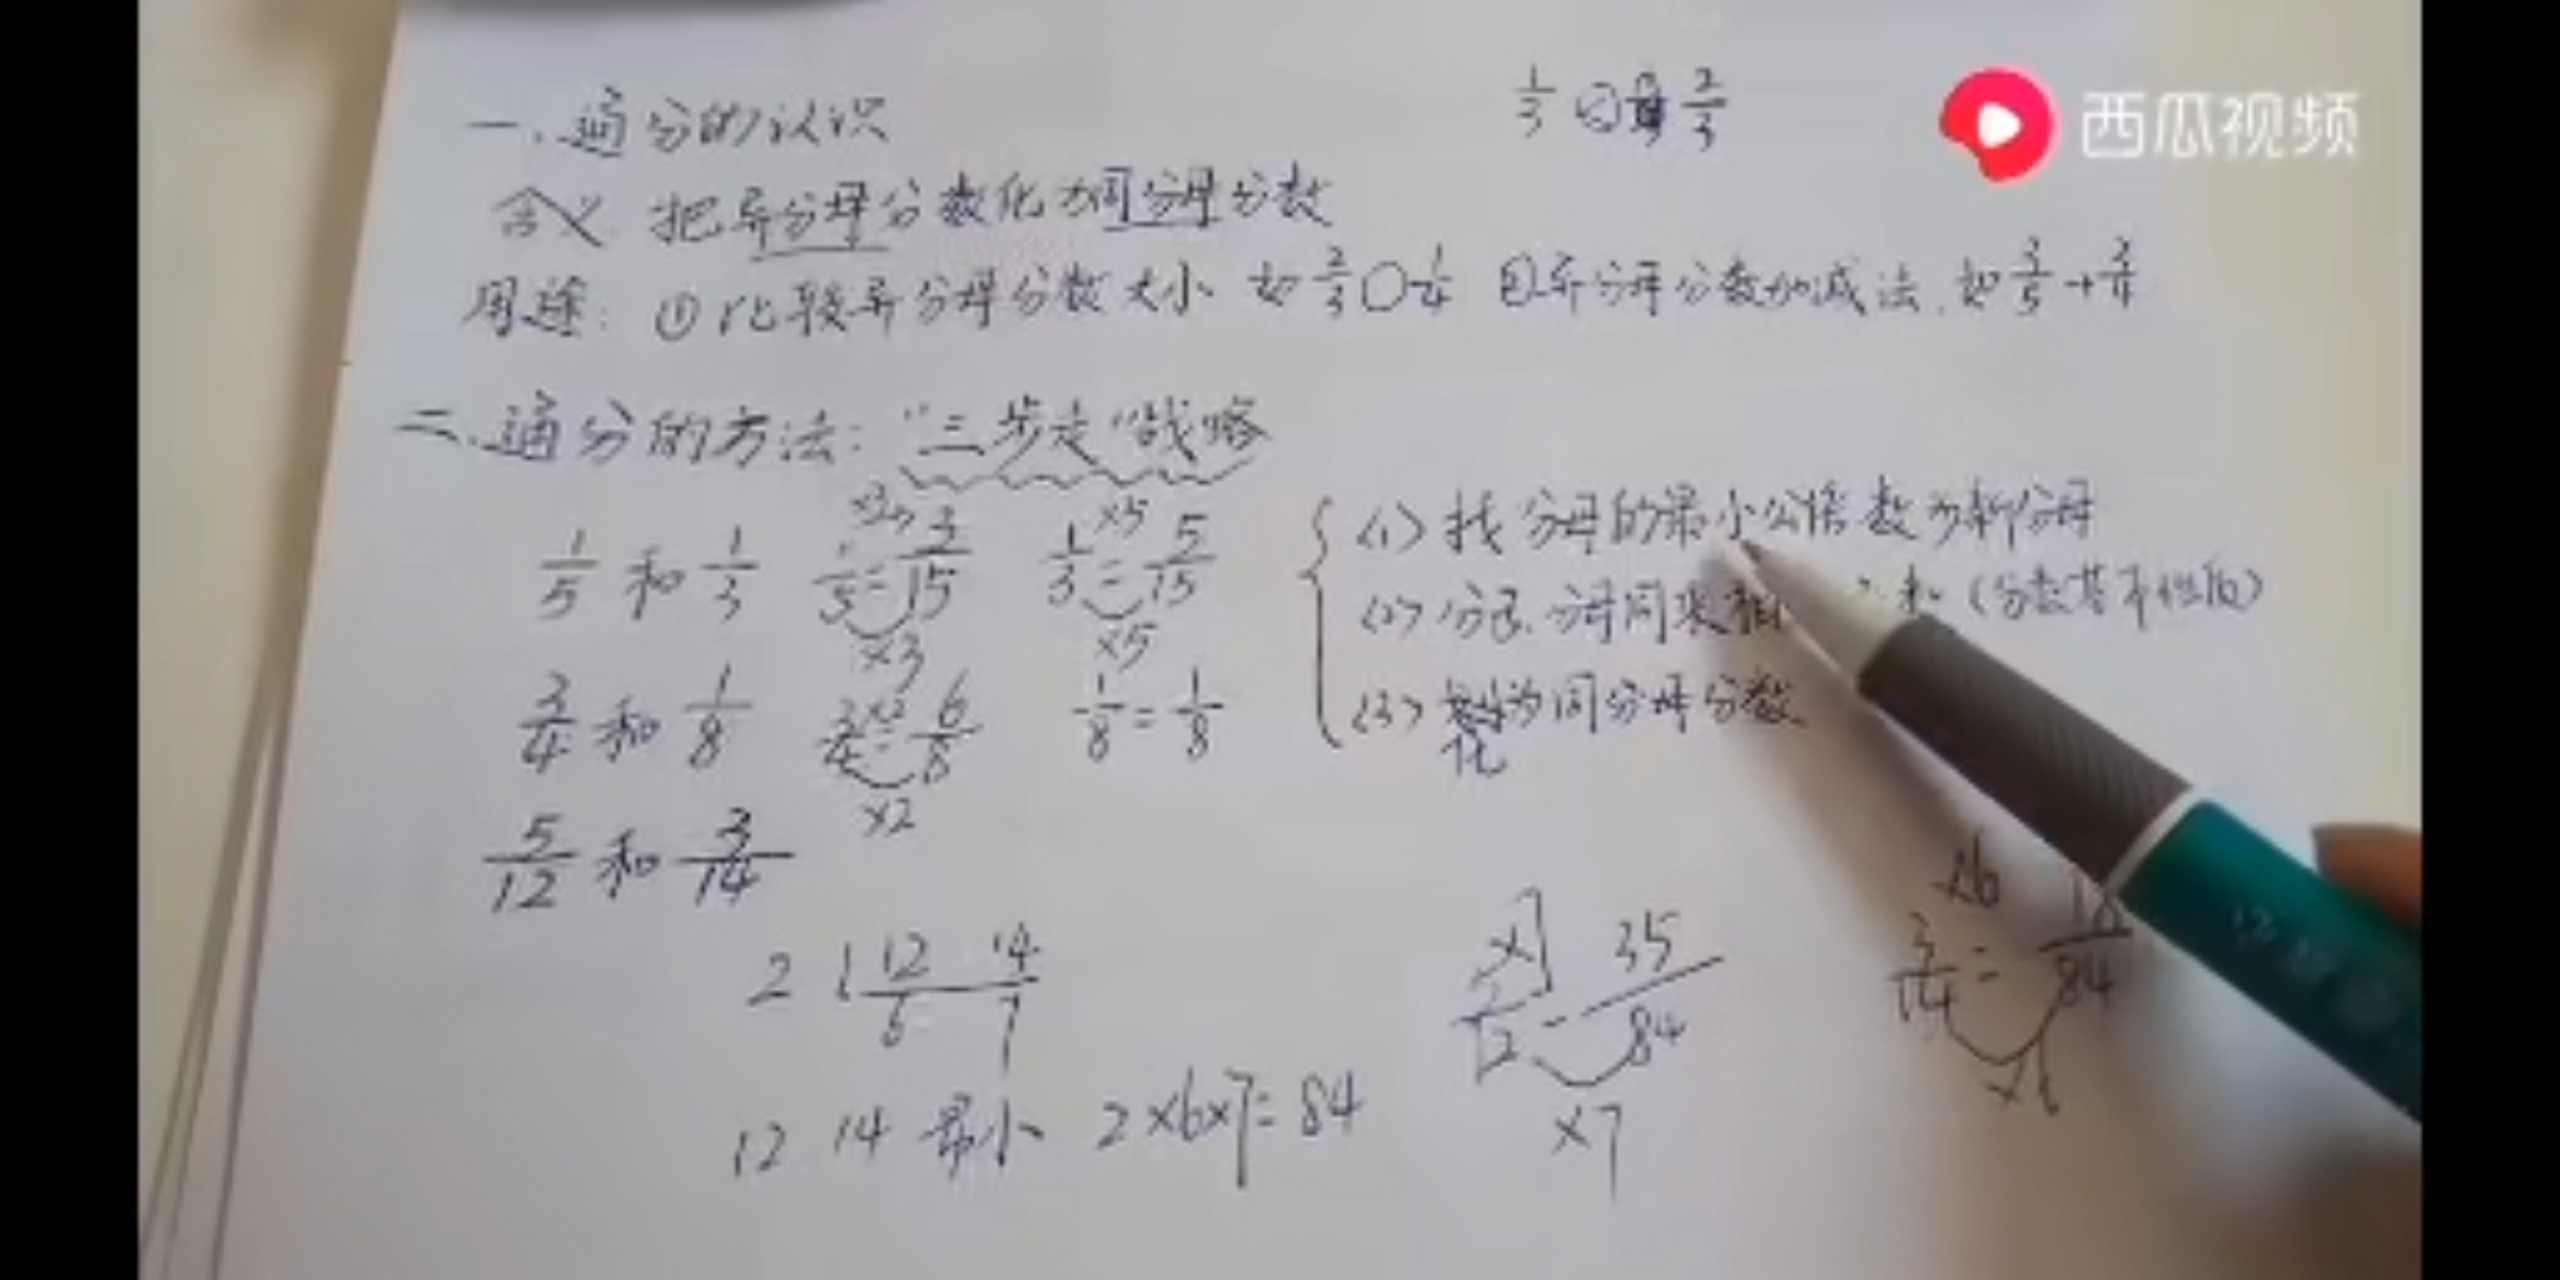 西瓜视频
1/3 < 2/3
一.通分的认识
含义 把异分母分数化为同分母分数
用途: ①比较异分母分数大小 如 2/3 ○ 1/4 ②异分母分数加减法. 如
二.通分的方法: "三步走"战略
1/5 和 1/3
×3 1/5 = 3/15 ×3
×5 1/3 = 5/15 ×5
(1) 找分母的最小公倍数为新分母
(2) 分子.分母同乘 (分数基本性质)
(3) 化为同分母分数
3/4 和 1/8
×2 3/4 = 6/8 ×2
1/8 = 1/8
5/12 和 3/14
2 12 14
6 7
12 14 最小 2×6×7=84
×7 35/84 ×7
×6 3/14 = 18/84 ×6